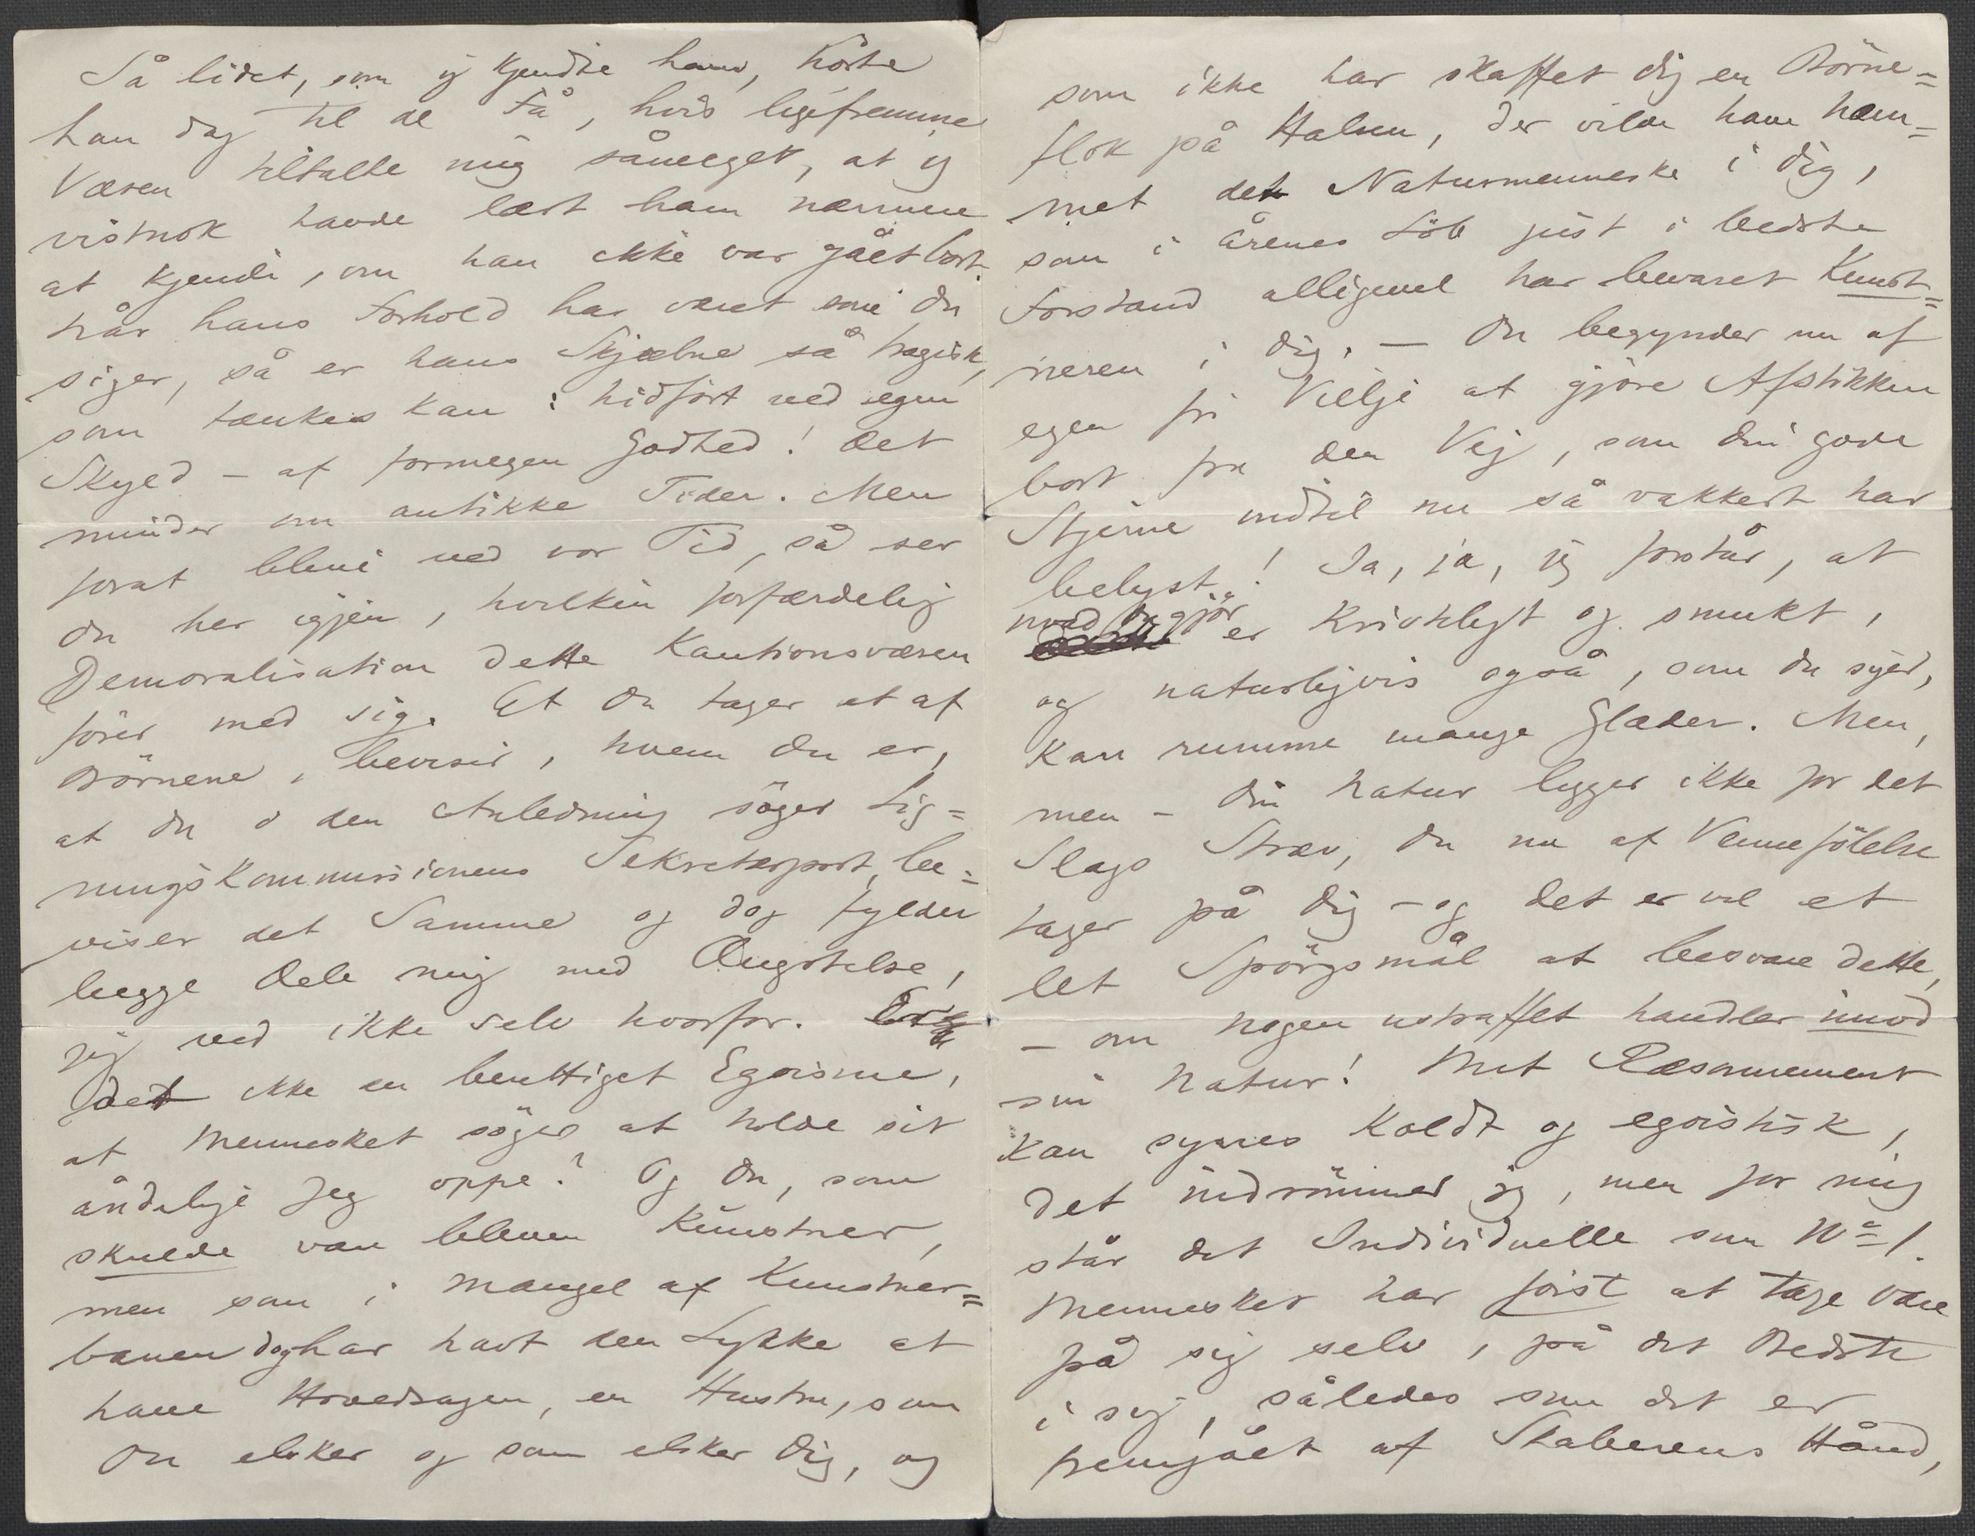 Så lidet, som jeg kjendte ham, hörte
han dog til de Få, hvis ligefremme
Væsen tiltalte mig såmeget, at jeg
vistnok havde lært ham nærmere
at kjende, om han ikke var gået bort.
Når hans Forhold har været som du
siger, så er hans Skjæbne så tragisk,
som tænkes kan: hidfört ved egen
Skyld – af formegen Godhed! Det
minder om antikke Tider. Men
forat blive ved vor Tid, så ser
du her igjen, hvilken forfærdelig
Demoralisation dette Kautionsvæsen
förer med sig. At du tager et af
Börnene, beviser, hvem du er,
at du i den Anledning söger Lig=
ningskommissionens Sekretærpost, be=
viser det Samme og dog fylder
begge Dele mig med Ængstelse,
jeg ved ikke selv hvorfor. Er
det ikke en berettiget Egoisme,
at Mennesket söger at holde sit
åndelige Jeg oppe? Og du, som
skulde van bleven Kunstner,
men som i Mangel af Kunstner=
banen dog har havt den Lykke at
have Hovedsagen, en Hustru, som
du elsker og som elsker dig, og
som ikke har skaffet dig en Börne=
flok på Halsen, der vilde have hæm=
met det Naturmenneske i dig,
som i årenes Löb just i bedste
Forstand alligevel har bevaret Kunst=
neren i dig. – Du begynder nu af
egen fri Vilje at gjöre Afstikkere
bort fra den Vej, som din gode
Stjerne indtil nu så vakkert har
belyst! Ja, ja, jeg forstår, at
hvad du gjör er kristeligt og smukt,
og naturligvis også, som du siger,
kan rumme mange Glæder. Men,
men – din Natur ligger ikke for det
Slags Stræv, du nu af Vennefölelse
tager på dig – og det er vel et
let Spörgsmål at besvare dette,
– om nogen ustraffet handler imod
sin Natur! Mit Ræsonnement
kan synes koldt og egoistisk,
det indrömmer jeg, men for mig
står det Individuelle som No 1.
Mennesket har först at tage vare
på sig selv, på det Bedste
i sig, således som det er
fremgået af Skaberens Hånd,